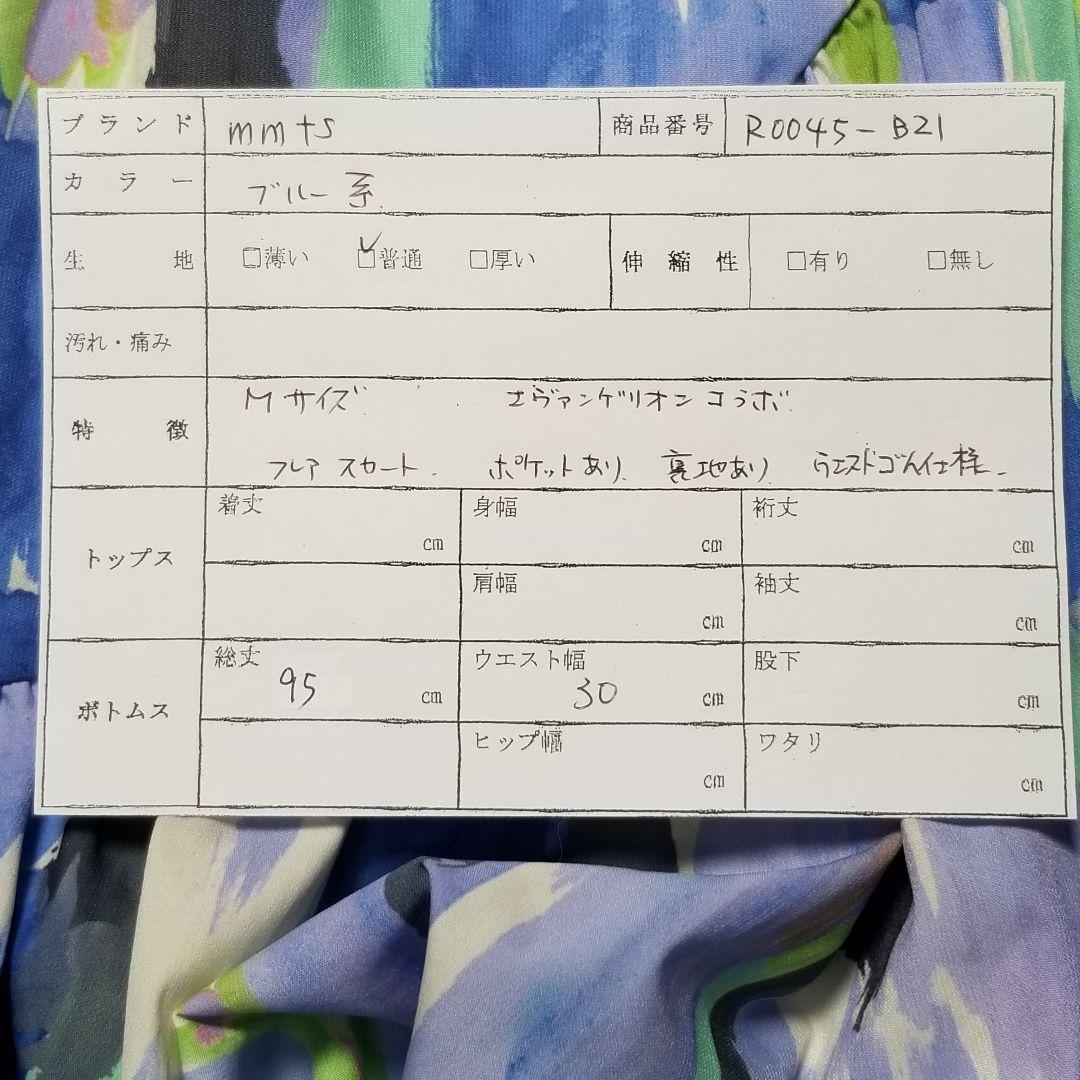 ブランド mmts 商品番号 R0045-B21
カラー ブルー系.
生地 □薄い ☑普通 □厚い 伸縮性 □有り □無し
汚れ・痛み
特徴 Mサイズ エヴァンゲリオンコラボ.
フレアスカート. ポケットあり. 裏地あり. ウエストゴム仕様.
トップス 着丈 cm 身幅 cm 裄丈 cm
肩幅 cm 袖丈 cm
ボトムス 総丈 95 cm ウエスト幅 30 cm 股下 cm
ヒップ幅 cm ワタリ cm